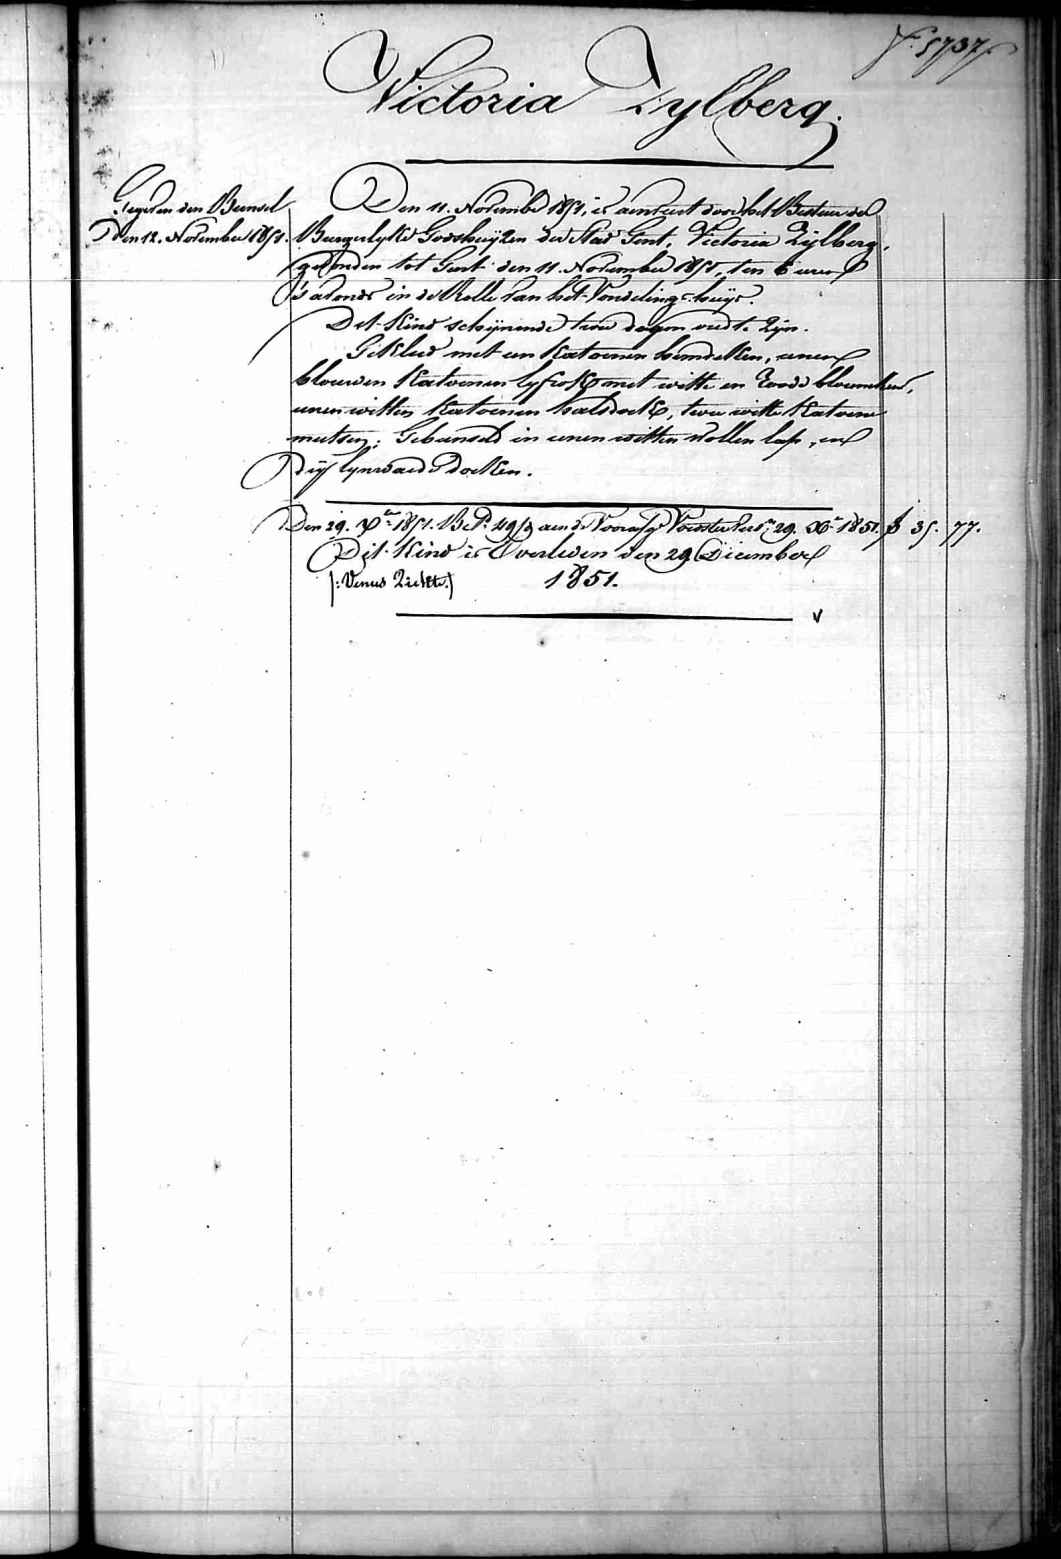 f. 5737
Victoria Zylberg.
Gegeven den Bunsel
Den 12. November 1851.
Den 11. November 1851, is aenveert door het Bestuer del
Burgerlyke Godshuyzen der Stad Gent, Victoria Zijlberg,
gevonden tot Gent den 11. November 1851, ten 6 uren
's avonds in de Rolle van het Vondelings-huys.
Dit Kind schijnende twee dagen oud te zijn.
Gekleed met een Katoenen hemdeken, eenen
blauwen Katoenen lyfrok met witte en roode bloemekens,
eenen witten Katoenen halsdoek, twee witte Katoene
mutsen; Gebunseld in eenen witten wollen lap, en
dry lynwaede doeken.
Den 29. Xber 1851. Bet. 49/3 aen de Voorsterhers 29. Xbr 1851. f 35. 77.
Dit Kind is Overleden den 29 December
1851.
(: Venus Ziekte.)
v